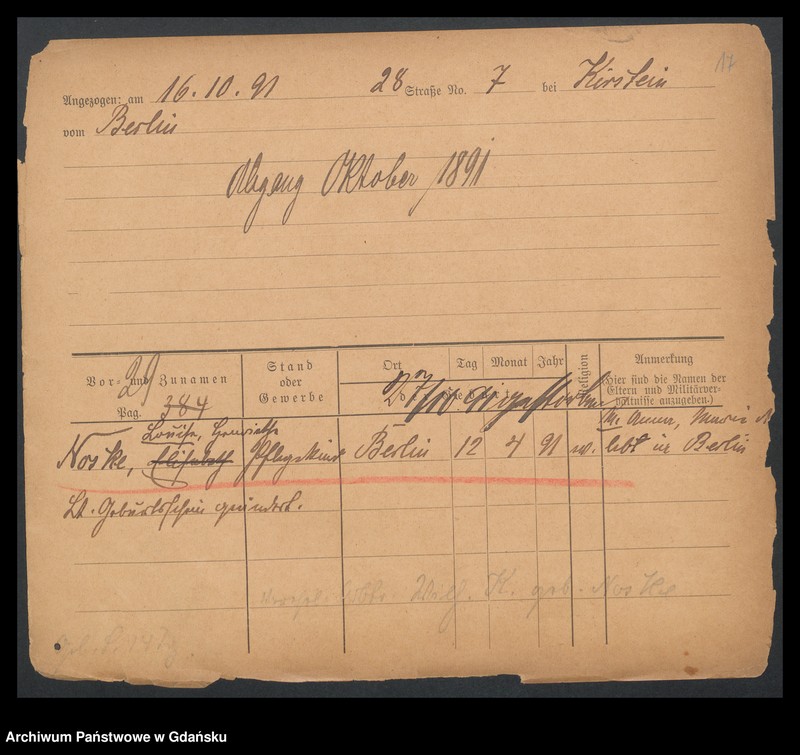 17
Angezogen: am 16.10.91 28 Straße No. 7 bei Kirstein
vom Berlin
Abgang Oktober 1891
Vor- und Zunamen
Stand oder Gewerbe
Ort
Tag
Monat
Jahr
Religion
Anmerkung
(Hier sind die Namen der Eltern und Militärver-
hältnisse anzugeben.)
29
Pag. 384
27/10 91 gestorben
Louise, Henriette
M. Anna, Marie N
Noske, Elisabeth Pflegekind Berlin 12 4 91 w. lebt in Berlin
Lt. Geburtsschein geändert.
Wilh. K. geb. Noske